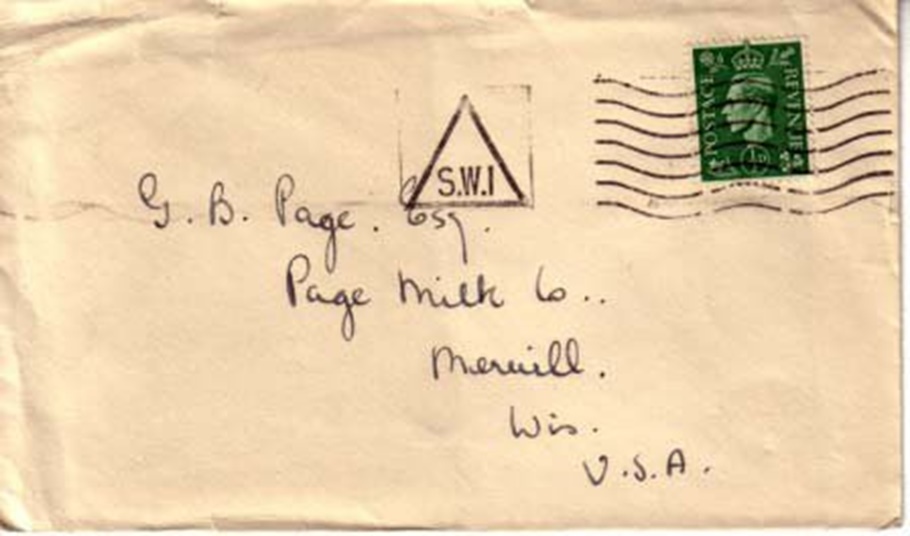 POSTAGE REVENUE
S.W.1
G. B. Page. Esq.
Page Milk Co..
Merrill.
Wis.
U.S.A.